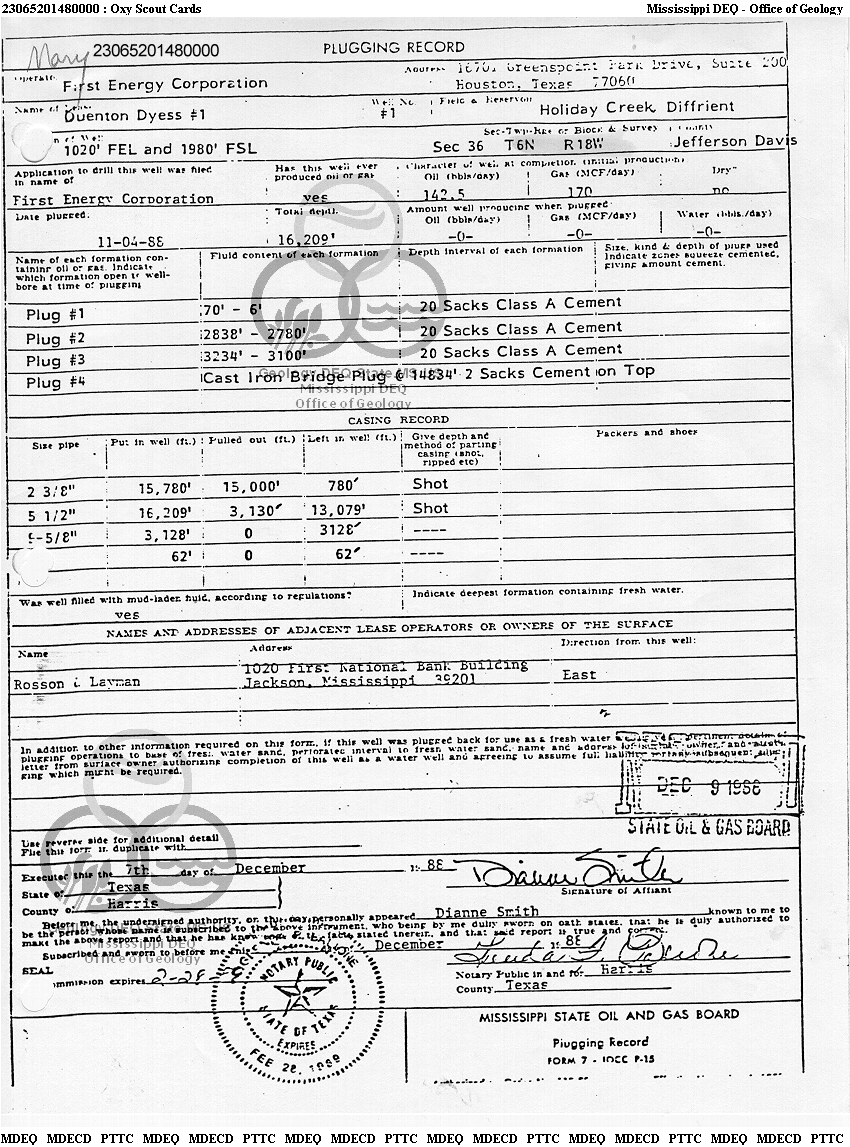 23065201480000 : Oxy Scout Cards Mississippi DEQ - Office of Geology
Mary 23065201480000 PLUGGING RECORD
Operator First Energy Corporation Address Greenspoint Park Drive, Suite 200
Houston, Texas 77060
Name of Duenton Dyess #1 Well No. #1 Field & Reservoir Holiday Creek, Diffrient
of Well 1020' FEL and 1980' FSL Sec-Twp-Rge or Block & Survey Sec 36 T6N R18W County Jefferson Davis
Application to drill this well was filed in name of First Energy Corporation Has this well ever produced oil or gas yes Character of well at completion (initial production) Oil (bbls/day) 142.5 Gas (MCF/day) 170 Dry? no
Date plugged: 11-04-88 Total depth 16,209' Amount well producing when plugged: Oil (bbls/day) -0- Gas (MCF/day) -0- Water (bbls./day) -0-
Name of each formation containing oil or gas. Indicate which formation open to wellbore at time of plugging Fluid content of each formation Depth interval of each formation Size, kind & depth of plugs used Indicate zones squeeze cemented, giving amount cement.
Plug #1 70' - 6' 20 Sacks Class A Cement
Plug #2 2838' - 2780' 20 Sacks Class A Cement
Plug #3 3234' - 3100' 20 Sacks Class A Cement
Plug #4 Cast Iron Bridge Plug @ 14834' 2 Sacks Cement on Top
Mississippi DEQ
Office of Geology
CASING RECORD
Size pipe Put in well (ft.) Pulled out (ft.) Left in well (ft.) Give depth and method of parting casing (shot, ripped etc) Packers and shoes
2 3/8" 15,780' 15,000' 780' Shot
5 1/2" 16,209' 3,130' 13,079' Shot
9-5/8" 3,128' 0 3128' ----
62' 0 62' ----
Was well filled with mud-laden fluid, according to regulations? yes Indicate deepest formation containing fresh water.
NAMES AND ADDRESSES OF ADJACENT LEASE OPERATORS OR OWNERS OF THE SURFACE
Name Address Direction from this well:
Rosson & Layman 1020 First National Bank Building East
Jackson, Mississippi 39201
In addition to other information required on this form, if this well was plugged back for use as a fresh water
plugging operations to base of fresh water sand, perforated interval to fresh water sand, name and address
letter from surface owner authorizing completion of this well as a water well and agreeing to assume full
ging which might be required.
DEC 9 1988
STATE OIL & GAS BOARD
Use reverse side for additional detail
File this form in duplicate with
Executed this the 7th day of December 1988 Dianne Smith
State of Texas Signature of Affiant
County of Harris
Before me, the undersigned authority, on this day personally appeared Dianne Smith known to me to
be the person whose name is subscribed to the above instrument, who being by me duly sworn on oath states, that he is duly authorized to
make the above report and that he has knowledge of the facts stated therein, and that said report is true and correct.
Subscribed and sworn to before me this December 1988
Office of Geology
SEAL
ommission expires Notary Public in and for Harris
County Texas
NOTARY PUBLIC
STATE OF TEXAS
EXPIRES
FEB 28, 1989
MISSISSIPPI STATE OIL AND GAS BOARD
Plugging Record
FORM 7 - IOCC P-15
MDEQ MDECD PTTC MDEQ MDECD PTTC MDEQ MDECD PTTC MDEQ MDECD PTTC MDEQ MDECD PTTC MDEQ MDECD PTTC